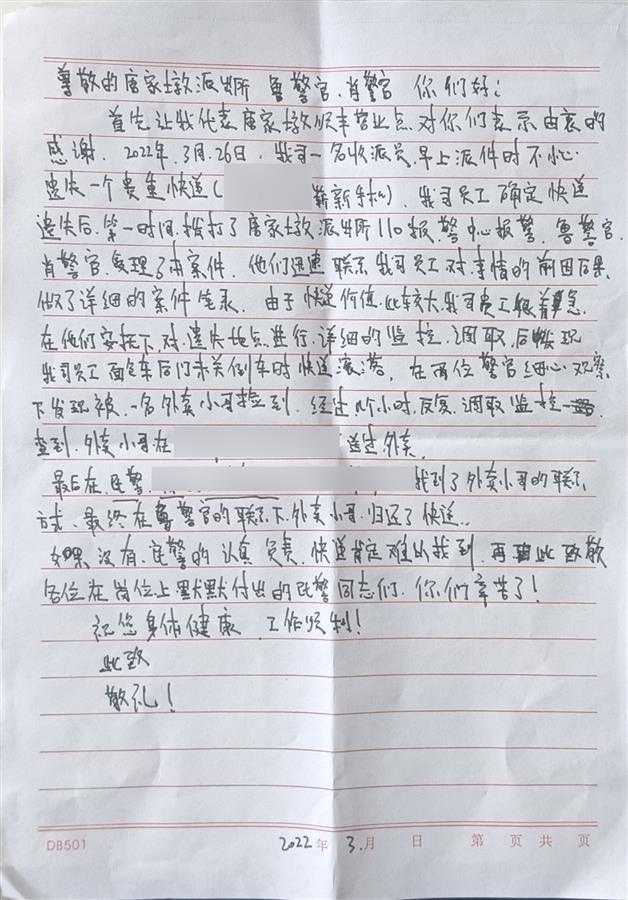 尊敬的唐家墩派出所 鲁警官、肖警官 你们好：
首先让我代表唐家墩顺丰营业点，对你们表示由衷的
感谢。2022年3月26日，我司一名收派员，早上派件时不小心
遗失一个贵重快递（ 崭新手机）。我司员工确定快递
遗失后，第一时间拨打了唐家墩派出所110报警中心报警，鲁警官、
肖警官，受理了本案件，他们迅速联系我司员工对事情的前因后果
做了详细的案件笔录，由于快递价值比较大，我司员工很着急，
在他们安抚下对遗失地点进行详细的监控，调取，后发现
我司员工面包车后门未关倒车时快递滚落，在两位警官细心观察
下发现被一名外卖小哥捡到，经过几个小时，反复调取监控
查到，外卖小哥在 送过外卖，
最后在民警 找到了外卖小哥的联系
方式，最终在鲁警官的联系下，外卖小哥，归还了快递。
如果没有民警的认真负责，快递肯定难以找到，再由此致敬
各位在岗位上默默付出的民警同志们，你们辛苦了！
祝您身体健康 工作顺利！
此致
敬礼！
DB501 2022年 3月 日 第 页共 页